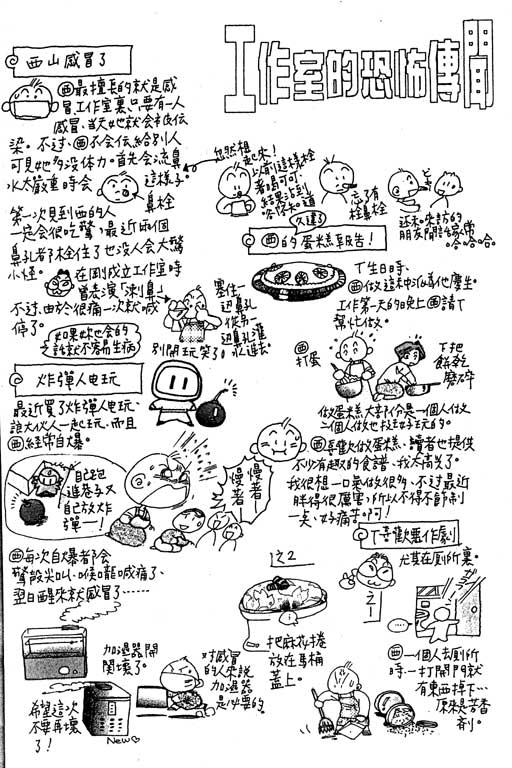 工作室的恐怖傳聞
西山感冒了
西最擅長的就是感
冒工作室裏只要有一人
感冒、当天她就会被伝
染。不过、西不会伝給别人
可見她多没体力。首先会流鼻
水太嚴重時会
這樣子。
鼻栓
第一次見到西的人
一定会很吃驚，最近兩個
鼻孔都栓住了也没人会大驚
小怪。
在剛成立工作室時
當表演「涮鼻」
不过、由於很痛一次就喊
停了。
塞住一
边鼻孔
從另一
边鼻孔進
水過去。
别開玩笑了。
如果她也会的
話就不容易生病
忽然想
起來！
以前這樣栓
著嗎可可、
忘了有
栓鼻栓
近來、來訪的
朋友間話家常
哈哈哈。
久違了
西的蛋糕報告！
T生日時、
西做這來切為他慶生。
工作第一天的晚上西請T
幫忙做。
西
打蛋
T把
餅乾
磨碎
做蛋糕大部份是一個人做
二個人做也挺好玩的。
西喜歡做蛋糕、讀者也提供
不少有趣的食譜、我太高兴了。
我很想一口氣做很多、不过最近
胖得很厲害、所以不得不節制
一点、好痛苦啊！
炸彈人电玩
最近買了炸彈人电玩、
讓大伙人一起玩、而且
西經常自爆。
自己跑
進巷子又
自己放炸
彈—！
慢著
慢著
西每次自爆都会
驚散尖叫、喉嚨喊痛了、
翌日醒來就感冒了……
加温器開
關壞了。
希望這次
不要再壞
了！
New
对感冒
的人來說
加温器
是必要的
T喜歡惡作劇
尤其在廁所裏。
之1
之2
把麻花捲
放在馬桶
蓋上。
西一個人去廁所
時、一打開門就
有東西掉下…
原來是芳香
剤。